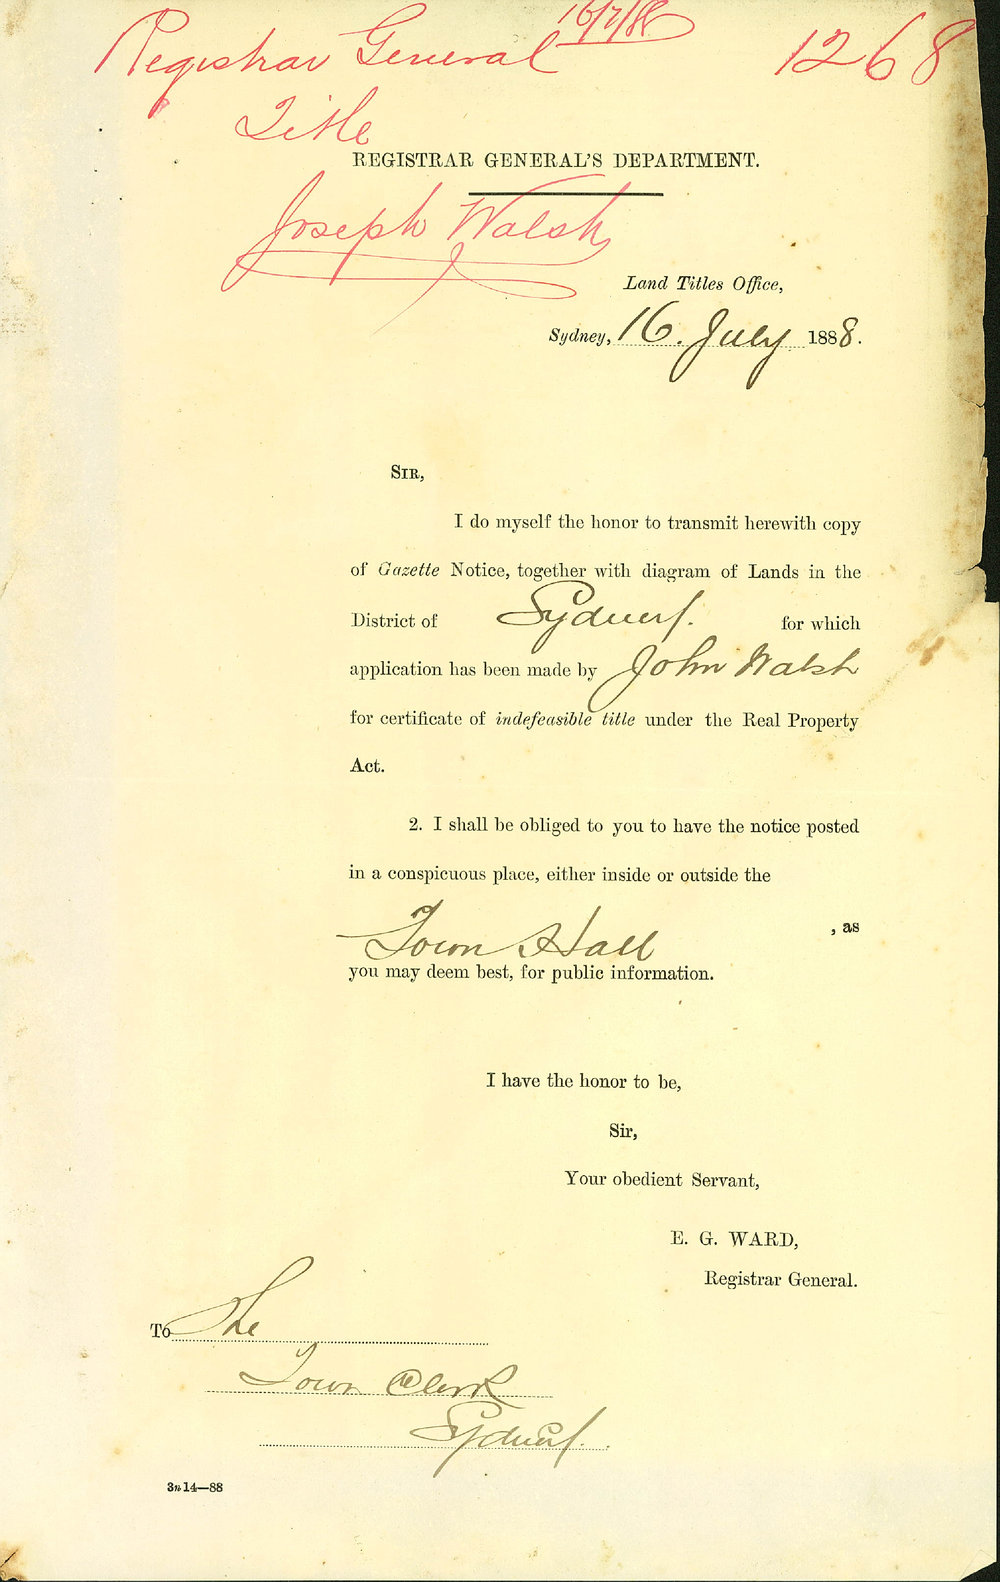 16/7/88
Registrar General 1268
Title
REGISTRAR GENERAL'S DEPARTMENT.
Joseph Walsh
Land Titles Office,
Sydney, 16. July 1888.
SIR,
I do myself the honor to transmit herewith copy
of Gazette Notice, together with diagram of Lands in the
District of Sydney. for which
application has been made by John Walsh
for certificate of indefeasible title under the Real Property
Act.
2. I shall be obliged to you to have the notice posted
in a conspicuous place, either inside or outside the
Town Hall , as
you may deem best, for public information.
I have the honor to be,
Sir,
Your obedient Servant,
E. G. WARD,
Registrar General.
To The
Town Clerk
Sydney.
3n14—88